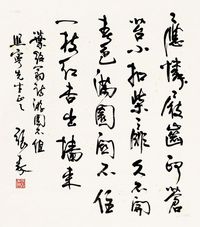 應憐屐齒印蒼
苔小扣柴扉久不開
春色滿園關不住
一枝紅杏出墻來
葉紹翁詩游園不值
先生正之